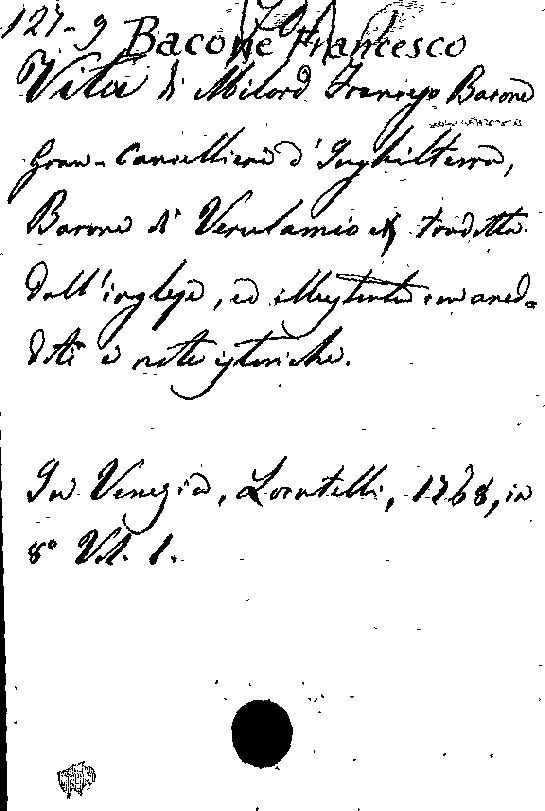 127-9 Bacone Francesco
Vita di Milord Francesco Bacone
Gran-Cancelliere d'Inghilterra,
Barone di Verulamio &c tradotta
dall'inglese, ed illustrata con aned-
doti e note istoriche.
In Venezia, Locatelli, 1768, in
8º Vol. 1.